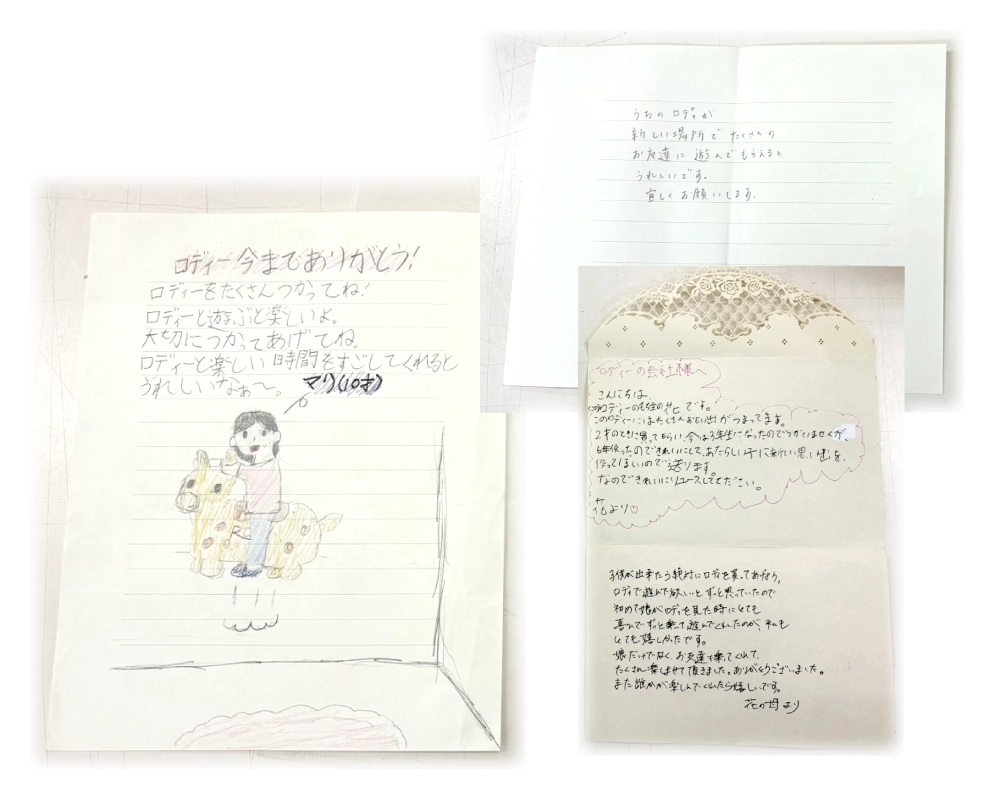 ロディー今までありがとう!
ロディーをたくさんつかってね!
ロディーと遊ぶと楽しいよ。
大切につかってあげてね。
ロディーと楽しい時間をすごしてくれると
うれしいなぁ〜。 マリ(10才)
R
うちの ロディが
新しい場所で たくさんの
お友達に 遊んで もらえると
うれしいです。
宜しく お願いします。
ロディーの会社様へ
こんにちは、
ロディーの持ち主の花です。
このロディーにはたくさんおもい出がつまってます。
2才のときに買ってもらい、今は3年生になったのでつかいませんが、
6年使ったのできれいにして、あたらしい子に新しい思い出を、
作ってほしいので送ります。
なのできれいにリユースしてください。
花より♡
子供が出来たら絶対にロディを買ってあげよう、
ロディで遊んで欲しいと ずっと思っていたので
初めて娘がロディを見た時にとても
喜んでずっと乗って遊んでくれたのが、私も
とても嬉しかったです。
娘だけでなく、お友達も乗ってくれて、
たくさん楽しませて頂きました。ありがとうございました。
また誰かが楽しんでくれたら嬉しいです。
花の母より